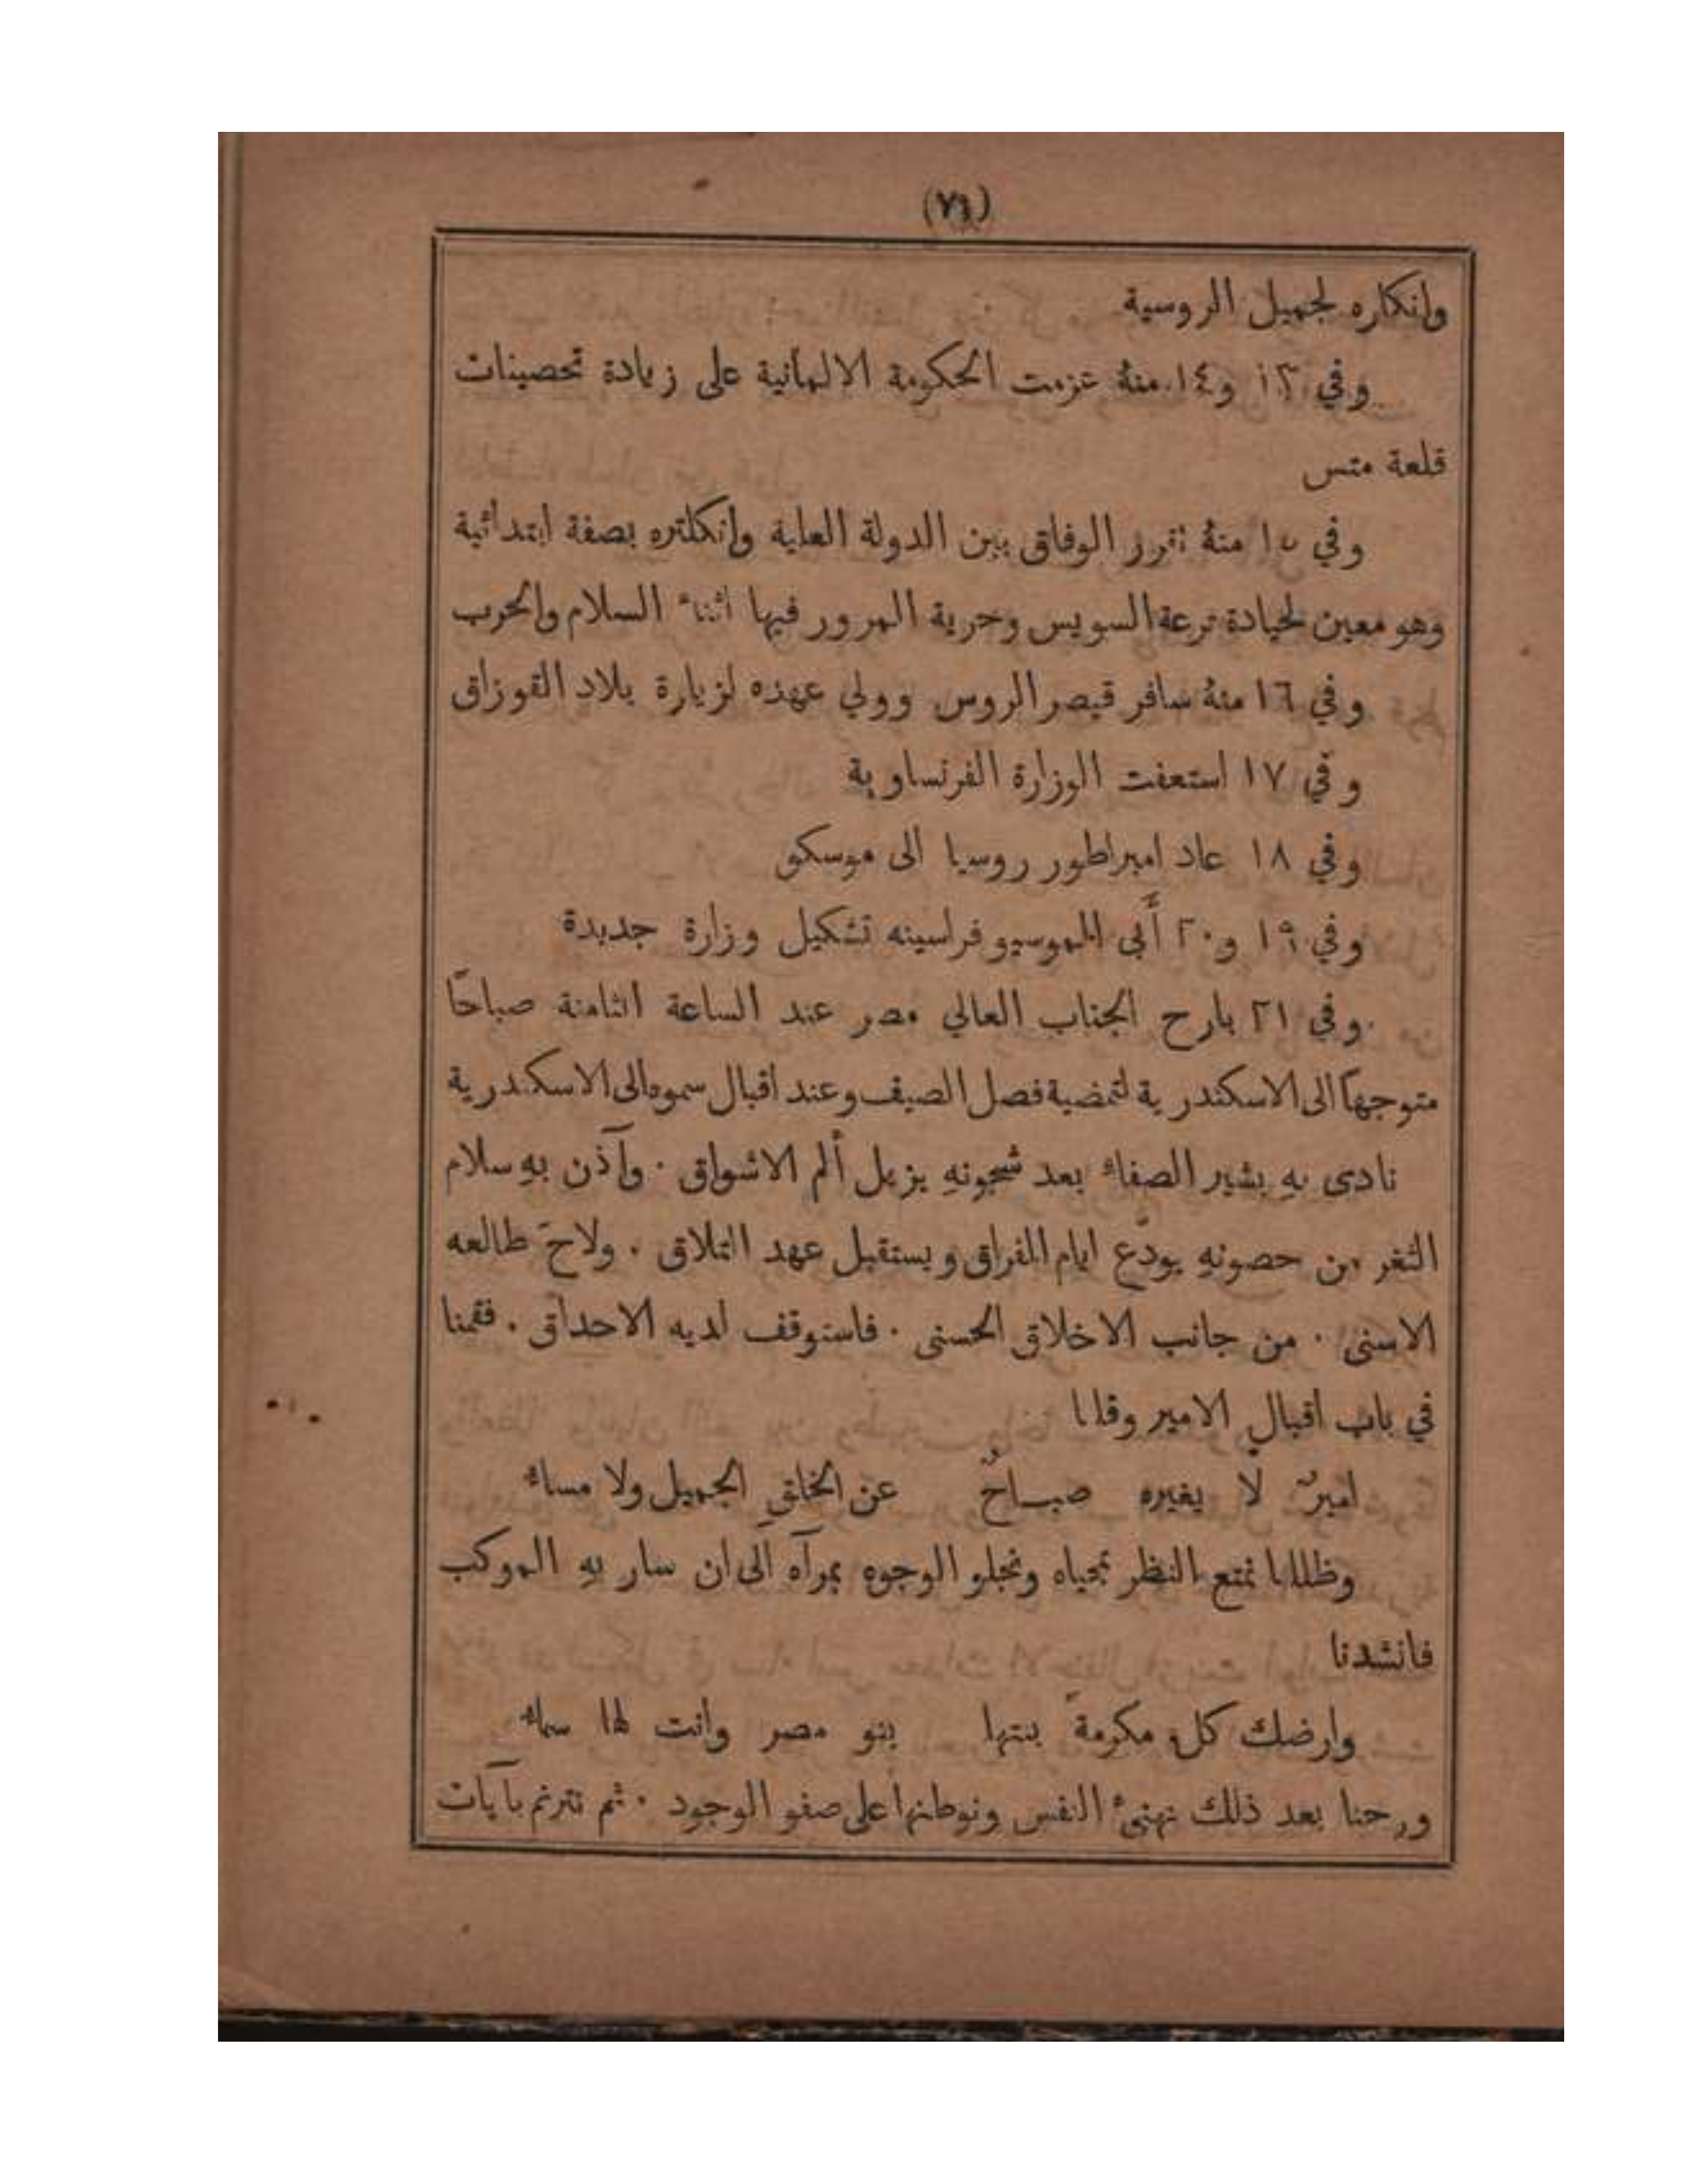 (٧٦)
وانكاره لجميل الروسية
وفي ١٣ و١٤ منهُ عزمت الحكومة الالمانية على زيادة تحصينات
قلعة متس
وفي ١٥ منهُ تقرر الوفاق بين الدولة العلية وانكلتره بصفة ابتدائية
وهو معين لحيادة ترعة السويس وحرية المرور فيها اثناء السلام والحرب
وفي ١٦ منهُ سافر قيصر الروس وولي عهده لزيارة بلاد القوزاق
وفي ١٧ استعفت الوزارة الفرنساوية
وفي ١٨ عاد امبراطور روسيا الى موسكو
وفي ١٩ و٢٠ أَبى الموسيو فراسينه تشكيل وزارة جديدة
وفي ٢١ بارح الجناب العالي مصر عند الساعة الثامنة صباحًا
متوجهًا الى الاسكندرية لتمضية فصل الصيف وعند اقبال سموه الى الاسكندرية
نادى بهِ بشير الصفاء بعد شجونهِ يزيل ألم الاشواق ٠ وآذن بهِ سلام
الثغر من حصونهِ يودّع ايام الفراق ويستقبل عهد التلاق ٠ ولاحَ طالعه
الاسنى ٠ من جانب الاخلاق الحسنى ٠ فاستوقف لديه الاحداق ٠ فقمنا
في باب اقبالِ الامير وقلنا
اميرٌ لا يغيره صباحٌ عن الخلقِ الجميل ولا مساء
وظللنا نمتع النظر بمحياه ونجلو الوجوه بمرآه الى ان سار بهِ الموكب
فانشدنا
وارضك كل مكرمة بنتها بنو مصر وانت لها سماء
ورحنا بعد ذلك نهنئ النفس ونوطنها على صفو الوجود ٠ ثم نترنم بآيات